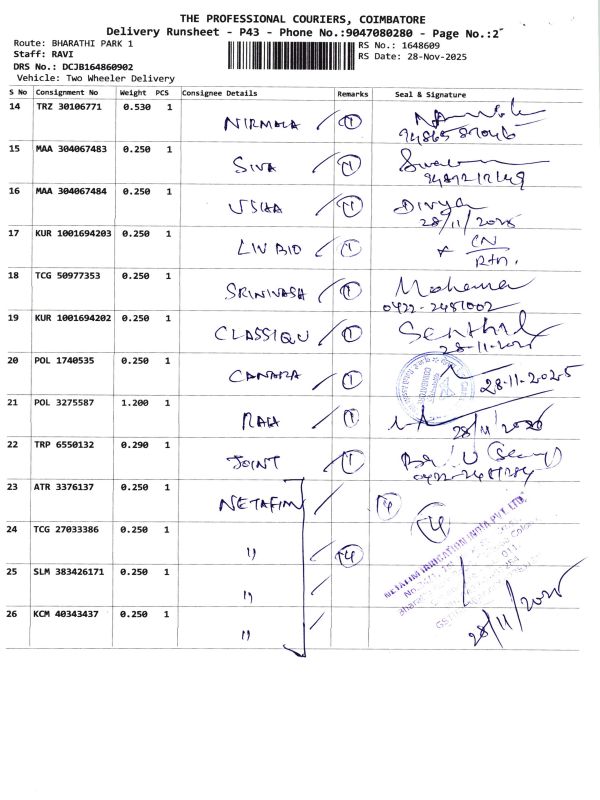 THE PROFESSIONAL COURIERS, COIMBATORE
Delivery Runsheet - P43 - Phone No.:9047080280 - Page No.:2
Route: BHARATHI PARK 1 RS No.: 1648609
Staff: RAVI RS Date: 28-Nov-2025
DRS No.: DCJB164860902
Vehicle: Two Wheeler Delivery
S No Consignment No Weight PCS Consignee Details Remarks Seal & Signature
14 TRZ 30106771 0.530 1 NIRMALA 1
15 MAA 304067483 0.250 1 SIVA 1
16 MAA 304067484 0.250 1 USHA 1 Divya
28/11/2025
17 KUR 1001694203 0.250 1 LIV BIO 1 CN
Rtn.
18 TCG 50977353 0.250 1 SRINIVASA 1 Mohana
0422-2481002
19 KUR 1001694202 0.250 1 CLASSIQU 1 Senthil
28-11-2025
20 POL 1740535 0.250 1 CANARA 1 28-11-2025
21 POL 3275587 1.200 1 1 28/11/2025
22 TRP 6550132 0.290 1 JOINT 1
23 ATR 3376137 0.250 1 NETAFIM 4 4
24 TCG 27033386 0.250 1 " 4
25 SLM 383426171 0.250 1 "
26 KCM 40343437 0.250 1 "
NETAFIM IRRIGATION INDIA PVT. LTD
28/11/2025